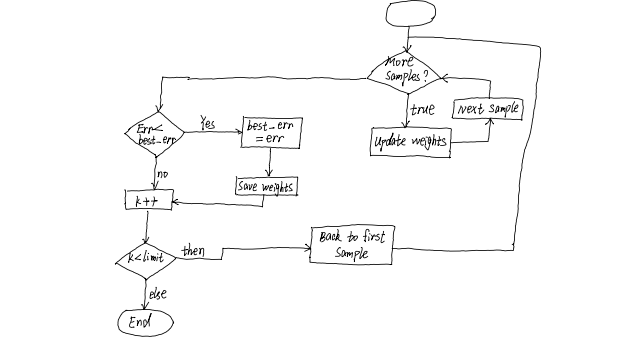 More
Samples?
true
Next sample
Update weights
Err<
best_err
Yes
best_err
=err
Save weights
no
k++
k<limit
then
Back to first
Sample
else
End